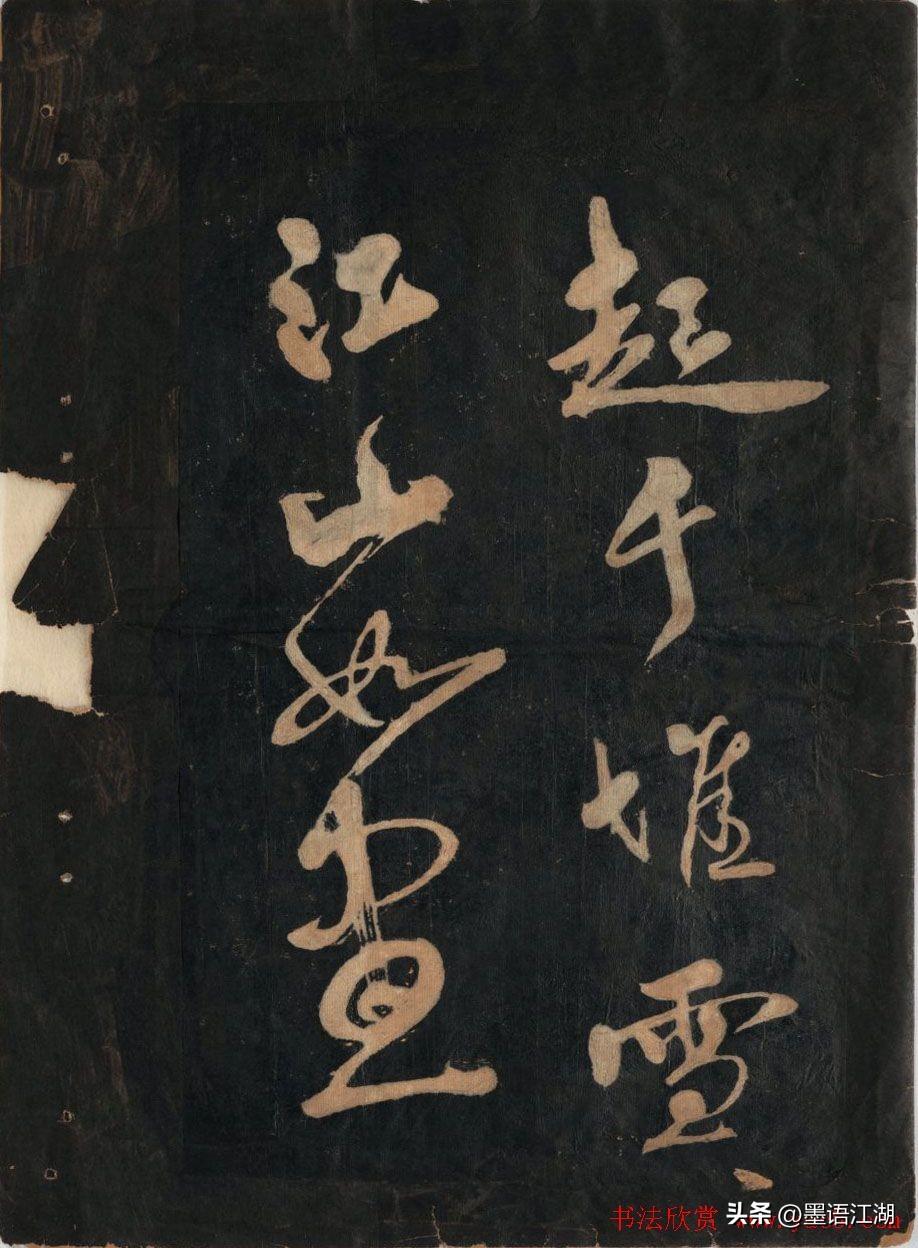 起千堆雪
江山如画
书法欣赏
头条 @墨语江湖